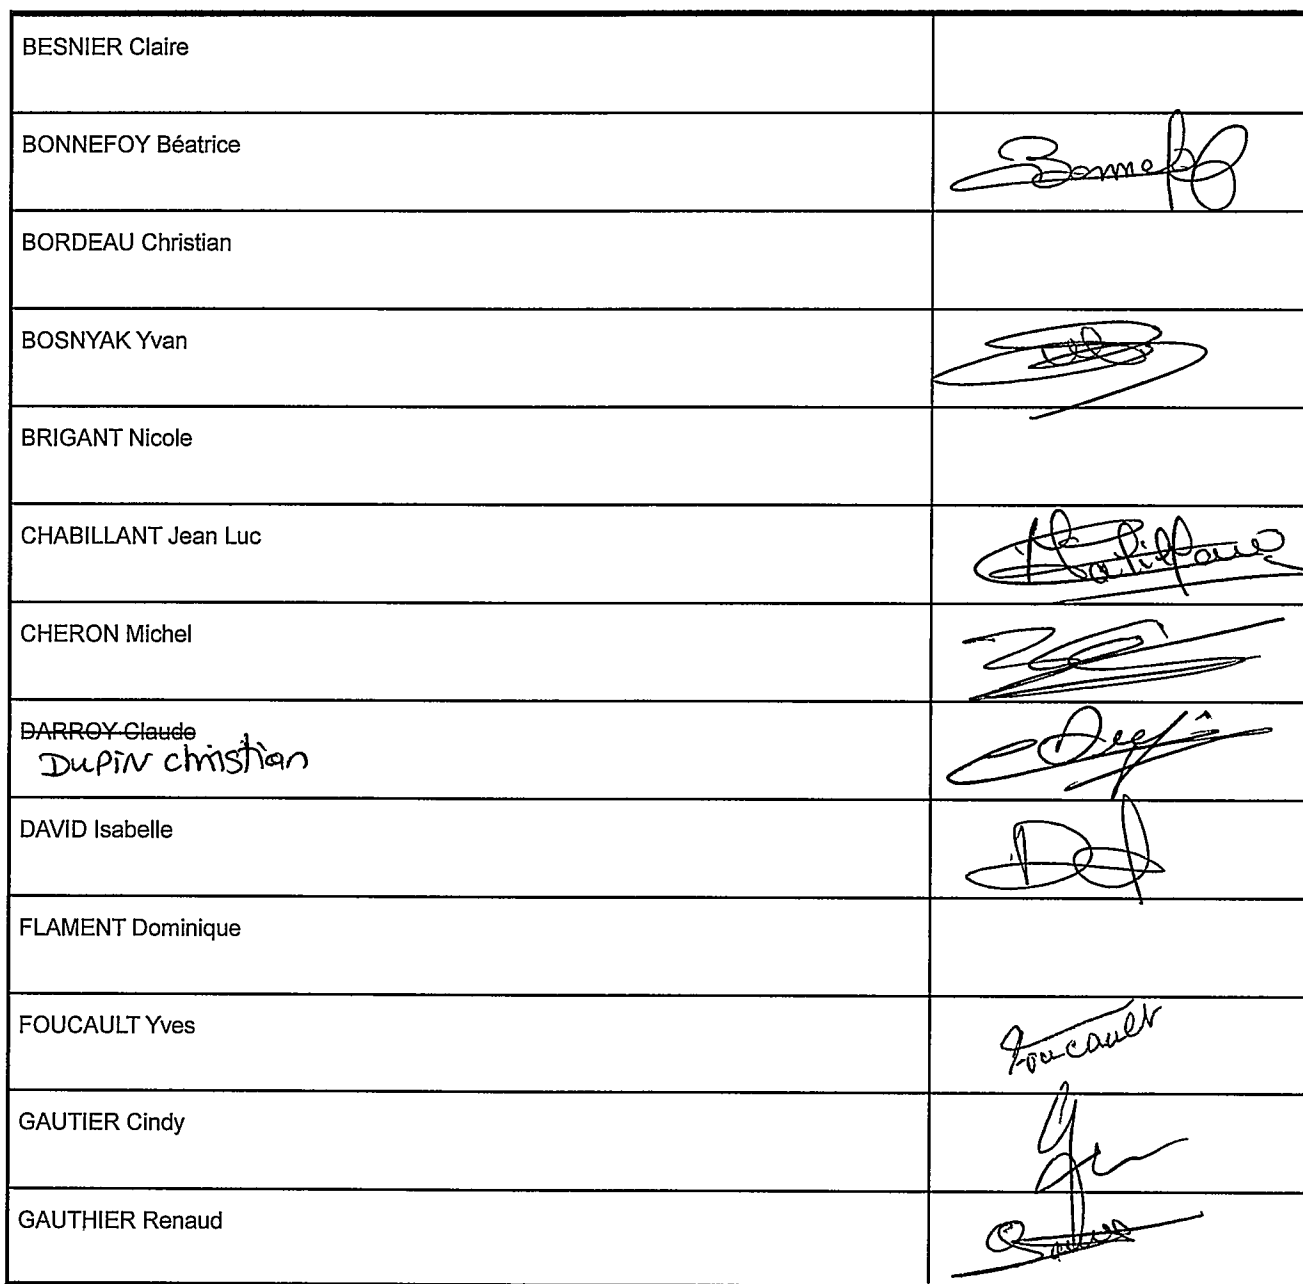 BESNIER Claire
BONNEFOY Béatrice
Bonnefoy
BORDEAU Christian
BOSNYAK Yvan
BRIGANT Nicole
CHABILLANT Jean Luc
CHERON Michel
DARROY Claude
DUPIN christian
DAVID Isabelle
FLAMENT Dominique
FOUCAULT Yves
Foucault
GAUTIER Cindy
GAUTHIER Renaud